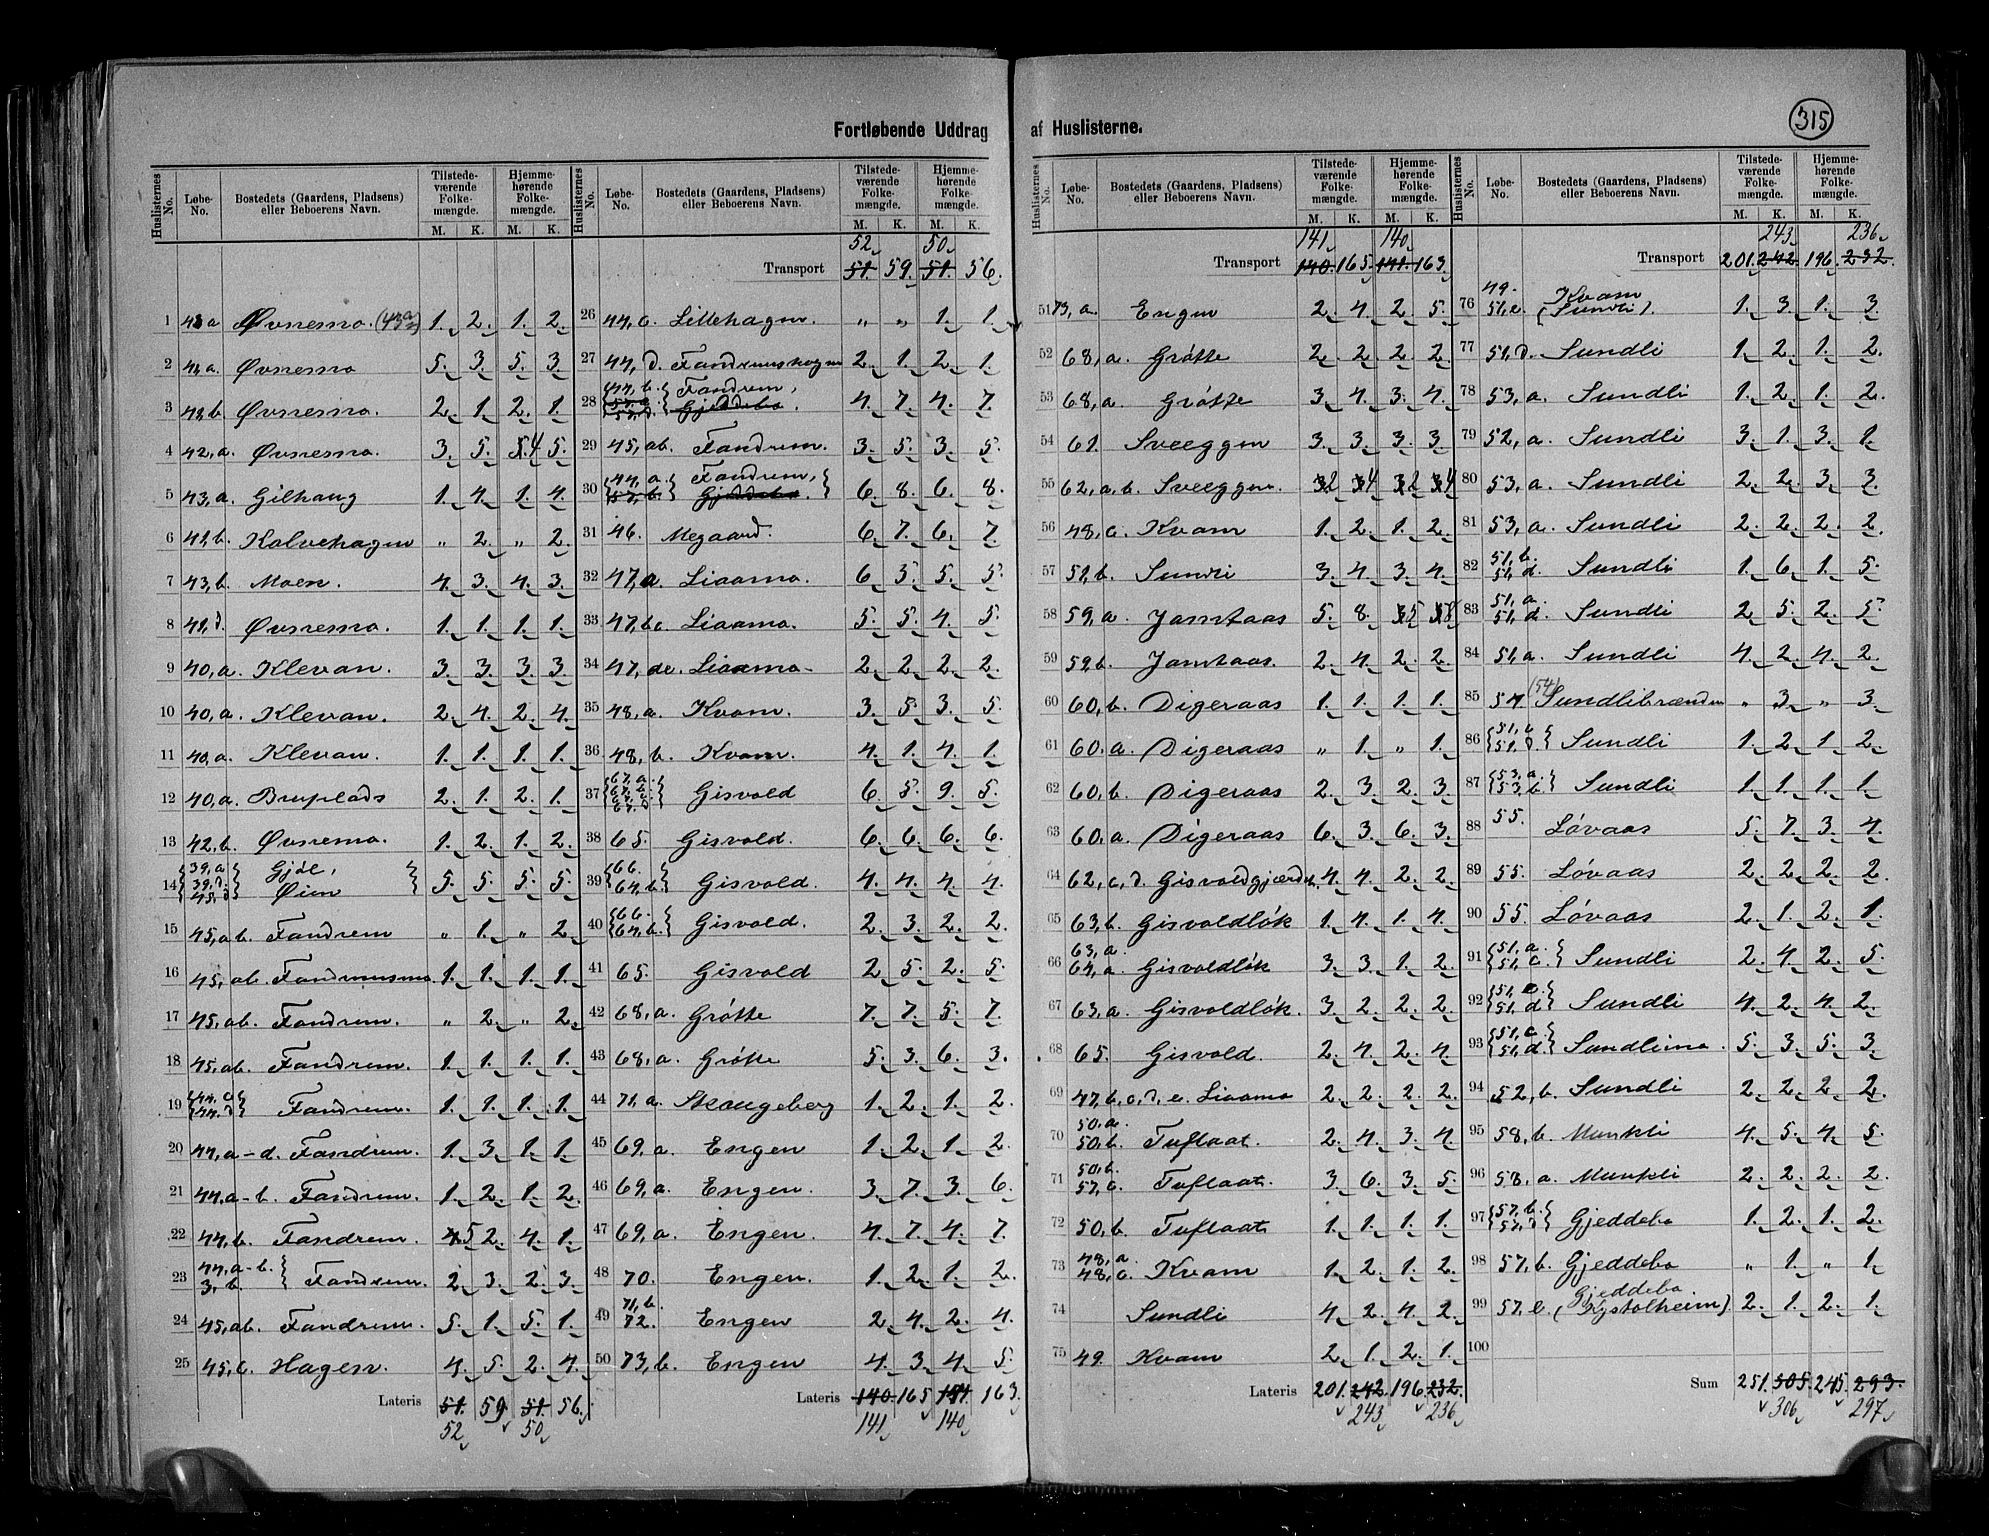 315
Fortløbende Uddrag af Huslisterne.
Huslisternes No. Løbe-No. Bostedets (Gaardens, Pladsens) eller Beboerens Navn. Tilstedeværende Folkemængde. M. K. Hjemmehørende Folkemængde. M. K.
1 Øvnesmo. (43a) 1. 2. 1. 2.
2 a. Øvnesmo 5. 3. 5. 3.
3 b Øvnesmo. 2. 1. 2. 1.
4 42, a. Øvnesmo. 3. 5. 4 5.
5 43, a. Gilhaug 1. 4. 1. 4.
6 41, b. Kalvehagen „ 2. „ 2.
7 43, b. Moen. 4. 3. 4. 3.
8 41, d. Øvnesmo. 1. 1. 1. 1.
9 40, a. Klevan. 3. 3. 3. 3.
10 40, a. Klevan. 2. 4. 2. 4.
11 40, a. Klevan. 1. 1. 1. 1.
12 40, a. Bruplads 2. 1. 2. 1.
13 42, b. Øvnesmo. 1. 2. 1. 2.
14 39, a 39, d. 45, d Gjøl, Øien 5. 5. 5. 5.
15 45, ab. Fandrem „ 1. „ 2.
16 45, ab. Fandremsmo 1. 1. 1. 1.
17 45, ab. Fandrem. „ 2. „ 2.
18 45, ab. Fandrem. 1. 1. 1. 1.
19 44. c 44. d Fandrem. 1. 1. 1. 1.
20 44, a-d. Fandrem. 1. 3. 1. 1.
21 44. a-b. Fandrem. 1. 2. 1. 2.
22 44, b. Fandrem. 5 2. 4. 1.
23 44, a-b. 3, b. Fandrem. 2. 3. 2. 3.
24 45, ab. Fandrem. 5. 1. 5. 1.
25 45, c. Hagen. 4. 5. 2. 4.
Lateris 51. 59 51. 56.
52 50
Huslisternes No. Løbe-No. Bostedets (Gaardens, Pladsens) eller Beboerens Navn. Tilstedeværende Folkemængde. M. K. Hjemmehørende Folkemængde. M. K.
52 50
Transport 51. 59. 51. 56.
26 44, c. Lillehagen. „ „ 1. 1.
27 44, d. Fandremshagen 2. 1. 2. 1.
28 44, b. Fandrem, Gjeddebo. 4. 7. 4. 7.
29 45, ab. Fandrem. 3. 5. 3. 5.
30 44, a. 57, b. Fandrem, Gjeddebo. 6. 8. 6. 8.
31 46. Megaard. 6. 7. 6. 7.
32 47, a. Liaamo. 6. 5. 5. 5.
33 47, bc. Liaamo. 5. 5. 4. 5.
34 47, de. Liaamo- 2. 2. 2. 2.
35 48, a. Kvam. 3. 5. 3. 5.
36 48, b. Kvam. 4. 1. 4. 1.
37 67, a. 67, b. 67, c. 67, d Gisvold 6. 5. 9. 5.
38 65. Gisvold. 6. 6. 6. 6.
39 66. 64, b. Gisvold. 4. 4. 4. 4.
40 66. 64, b. Gisvold. 2. 3. 2. 2.
41 65. Gisvold 2. 5. 2. 5.
42 68, a. Grøtte 7. 7. 5. 7.
43 68, a. Grøtte 5. 3. 6. 3.
44 71, a. Skaugeberg 1. 2. 1. 2.
45 69, a. Engen 1. 2. 1. 2.
46 69, a. Engen. 3. 7. 3. 6.
47 69, a. Engen. 4. 7. 4. 7.
48 70. Engen. 1. 2. 1. 2.
49 71, b. 72. Engen 2. 4. 2. 4.
50 73, b. Engen 4. 3. 4. 5.
Lateris 140. 165 141 163.
141 140
Huslisternes No. Løbe-No. Bostedets (Gaardens, Pladsens) eller Beboerens Navn. Tilstedeværende Folkemængde. M. K. Hjemmehørende Folkemængde. M. K.
141 140
Transport 140. 165. 141. 163.
51 73, a. Engen 2. 4. 2. 5.
52 68, a. Grøtte 2. 2. 2. 2.
53 68, a. Grøtte 3. 4. 3. 4.
54 61. Sveeggen 3. 3. 3. 3.
55 62, a, b. Sveeggen. 2 4 2 4
56 48, c. Kvam 1. 2. 1. 2.
57 51, b. Sundli 3. 4. 3. 4.
58 59, a. Jamtaas 5. 8. 5 8
59 59, b. Jamtaas. 2. 4. 2. 2.
60 60, b. Digeraas 1. 1. 1. 1.
61 60. a. Digeraas „ 1. „ 1.
62 60, b. Digeraas 2. 3. 2. 3.
63 60, a. Digeraas 6. 3. 6. 3.
64 62, c, d. Gisvoldgjærdet. 4. 4. 2. 2.
65 63, b. Gisvoldløk 1. 4. 1. 4.
66 63, a. 64, a. Gisvoldløk 3. 3. 1. 2.
67 63, a. Gisvoldløk. 3. 2. 2. 2.
68 65. Gisvold. 2. 4. 2. 4.
69 47, b, c, d, e. Liaamo 2. 2. 2. 2.
70 50, a. 50, b. Tuflaat. 2. 4. 3. 4.
71 50, b. 57, c. Tuflaat. 3. 6. 3. 5.
72 50, b. Tuflaat 1. 1. 1. 1.
73 48, a. 48, c. Kvam 1. 2. 1. 2.
74 Sundli 4. 2. 4. 2.
75 49. Kvam 2. 1. 2. 1.
Lateris 201. 242. 196. 232.
243 236
Huslisternes No. Løbe-No. Bostedets (Gaardens, Pladsens) eller Beboerens Navn. Tilstedeværende Folkemængde. M. K. Hjemmehørende Folkemængde. M. K.
243 236
Transport 201. 242. 196. 232.
76 49. 51, e. Kvam (Sundli). 1. 3. 1. 3.
77 51, d. Sundli 1. 2. 1. 2.
78 53, a. Sundli 1. 2. 1. 2.
79 52, a. Sundli 3. 1. 3. 1.
80 53, a. Sundli 2. 2. 3. 3.
81 53, a. Sundli 2. 2. 2. 2.
82 51, b. 51, d. Sundli 1. 6. 1. 5.
83 51, a. 51, d. Sundli 2. 5. 2. 5.
84 51, a. Sundli 4. 2. 4. 2.
85 54 (54) Sundlibrænden „ 3. „ 3.
86 51, d. Sundli 1. 2. 1. 2.
87 53, a. 53, b. Sundli 1. 1. 1. 1.
88 55. Løvaas 5. 7. 3. 4.
89 55. Løvaas 2. 2. 2. 2.
90 55. Løvaas 2. 1. 2. 1.
91 51, a. 51, c. Sundli 2. 4. 2. 5.
92 51, c. 51, d Sundli 4. 2. 4. 2.
93 51, c. 51, d. Sundlimo. 5. 3. 5. 3.
94 52, b. Sundli 2. 2. 2. 2.
95 58, b. Munkli 4. 5. 4. 5.
96 58, a. Munkli 2. 2. 2. 2.
97 57, b. 57, d Gjeddebo 1. 2. 1. 2.
98 57, b. Gjeddebo „ 1. „ 1.
99 57, e. Gjeddebo. (Kystolheim) 2. 1. 2. 1.
100
Sum 251. 305. 245. 293.
306 297